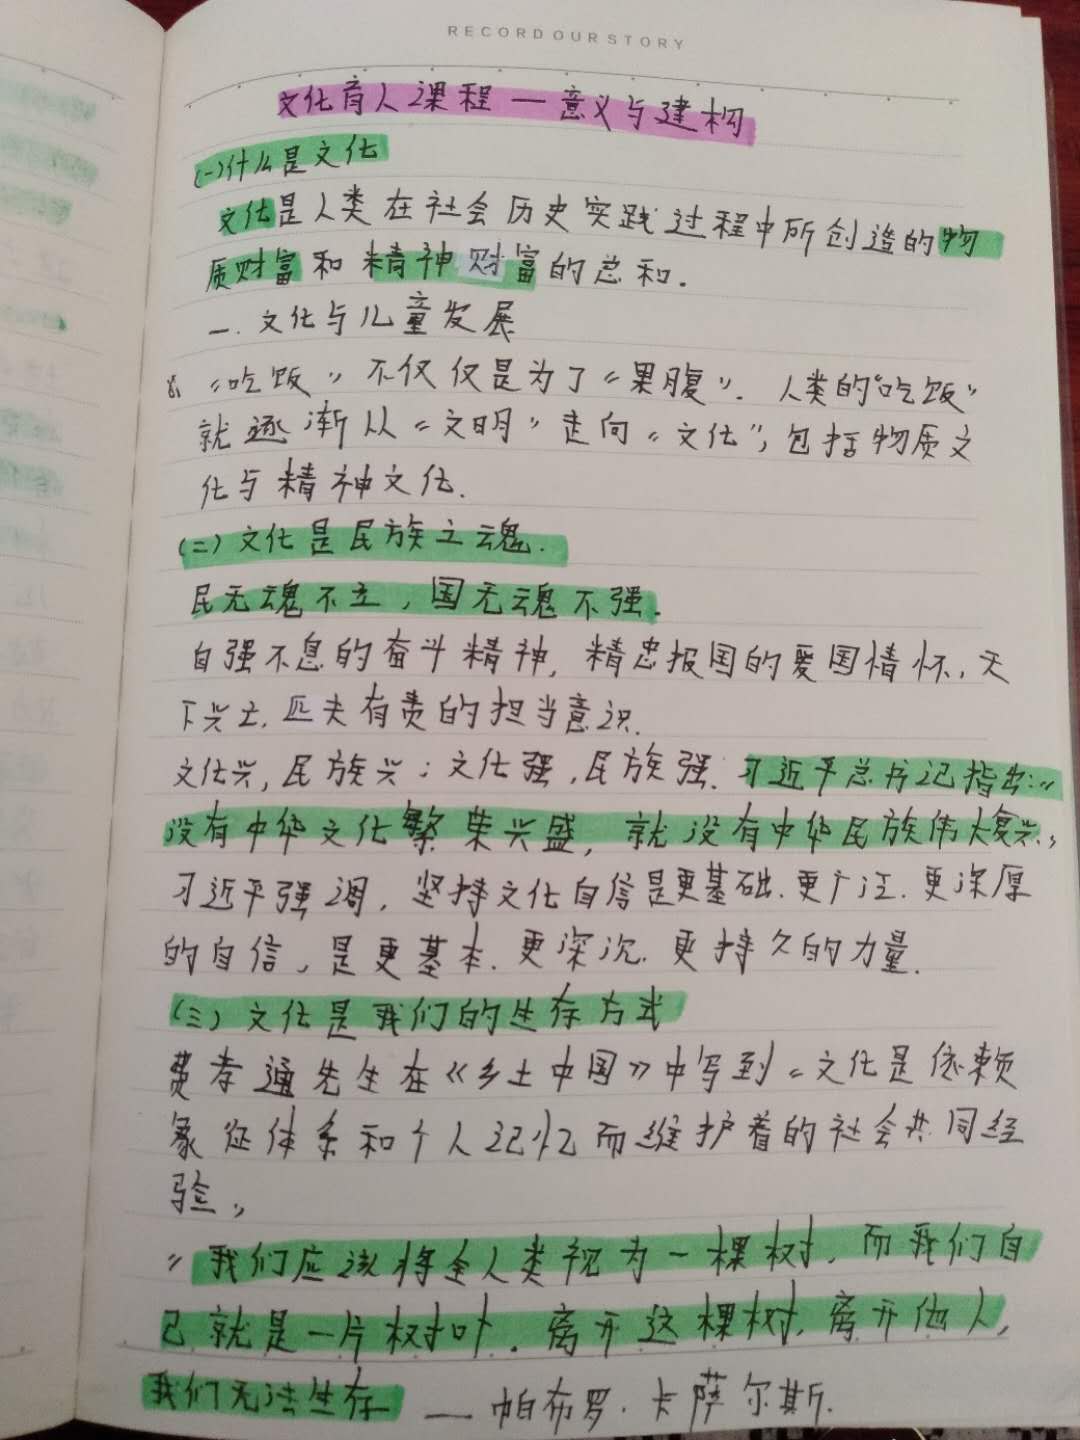 RECORD OUR STORY
文化育人课程—意义与建构
(一)什么是文化
文化是人类在社会历史实践过程中所创造的物
质财富和精神财富的总和.
一.文化与儿童发展
“吃饭”不仅仅是为了“果腹”.人类的“吃饭”
就逐渐从“文明”走向“文化”,包括物质文
化与精神文化.
(二)文化是民族之魂.
民无魂不立,国无魂不强.
自强不息的奋斗精神,精忠报国的爱国情怀,天
下兴亡,匹夫有责的担当意识.
文化兴,民族兴;文化强,民族强.习近平总书记指出:“
没有中华文化繁荣兴盛,就没有中华民族伟大复兴.”
习近平强调,坚持文化自信是更基础.更广泛.更深厚
的自信,是更基本.更深沉.更持久的力量.
(三)文化是我们的生存方式
费孝通先生在《乡土中国》中写到“文化是依赖
象征体系和个人记忆而维护着的社会共同经
验”
“我们应该将全人类视为一棵树,而我们自
己就是一片树叶.离开这棵树,离开他人,
我们无法生存——帕布罗.卡萨尔斯.